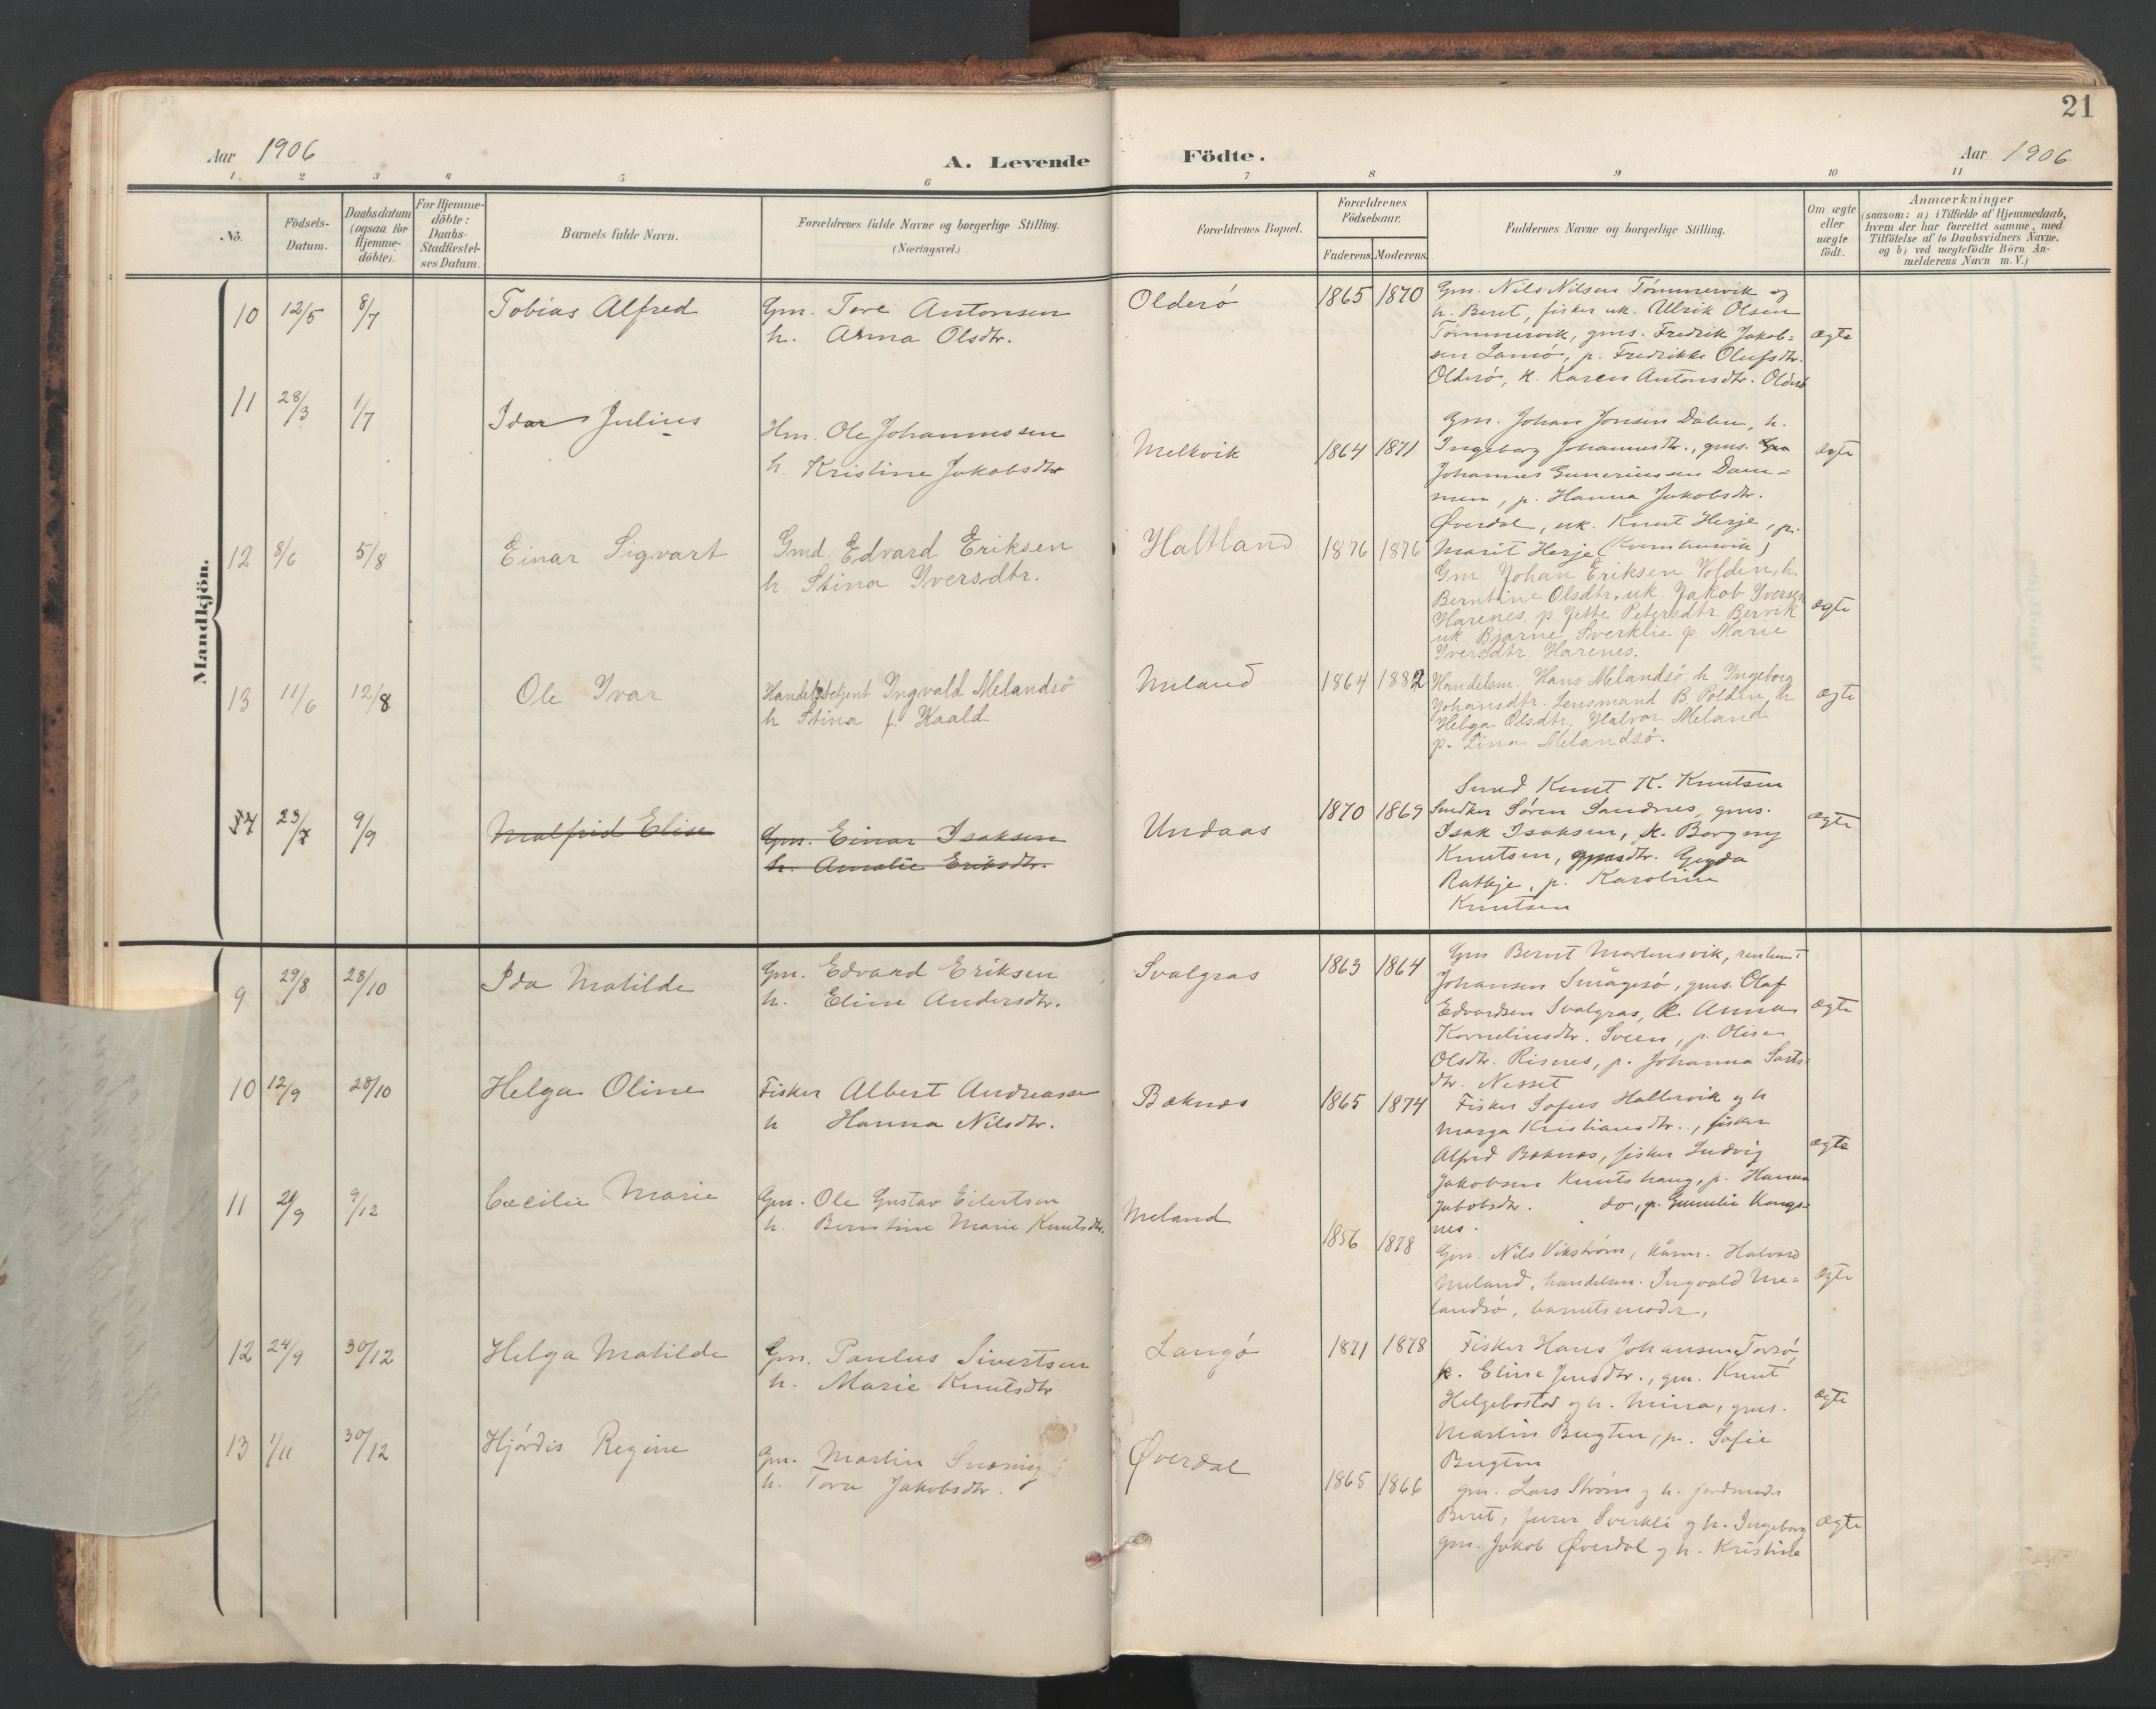 21
Aar 1906
A. Levende Födte.
Aar 1906
1 2 3 4 5 6 7 8 9 10 11
No.
Födsels-
Datum.
Daabsdatum
(ogsaa for
Hjemme-
döbte).
For Hjemme-
döbte:
Daabs-
Stadfæstel-
ses Datum.
Barnets fulde Navn.
Forældrenes fulde Navne og borgerlige Stilling.
(Næringsvei.)
Forældrenes Bopæl.
Forældrenes
Födselsaar.
Faderens. Moderens.
Faddernes Navne og borgerlige Stilling.
Om ægte
eller
uægte
födt.
Anmærkninger
(saasom: a) i Tilfælde af Hjemmedaab,
hvem der har forrettet samme, med
Tilföielse af to Daabsvidners Navne.
og b) ved uægtefödte Börn An-
melderens Navn m. V.)
Mandkjön.
10 12/5 8/7 Tobias Alfred
Gm. Tore Antonsen
h. Anna Olsdtr.
Olderö 1865 1870
Gm. Nils Nilsen Tömmervik og
h. Beret, fisker uk. Ulrik Olsen
Tömmervik, gms. Fredrik Jakob-
sen Lamö, p. Fredrikke Olufsdtr.
Olderö, k. Karen Antonsdtr. Olderö
ægte
11 28/3 1/7 Idar Julius
Hm. Ole Johannessen
h. Kristine Jakobsdtr
Melkvik 1864 1871
Gm. Johan Jonsen Dalen, h.
Ingeborg Johannesdtr., gms.
Johannes Guneriussen Dam-
men, p. Hanna Jakobsdtr.
Øverdal, uk. Knut Herje, p.
Marit Herje (Kvernhusvik)
ægte
12 8/6 5/8 Einar Sigvart
Gmd. Edvard Eriksen
h. Stina Iversdtr.
Haltland 1876 1876
Gm. Johan Eriksen Volden, h.
Berntine Olsdtr, uk Jakob Iversen
Harenes. p. Jette Petersdtr. Bervik
uk Bjarne Sverklie p. Marie
Iversdtr Harenes.
ægte
13 11/6 12/8 Ole Ivar
Handelsbetjent Ingvald Melandsö
h Stina f. Kaald
Meland 1864 1882
Handelsm. Hans Melandsö h Ingeborg
Johansdtr. Lensmand B. Polden, h
Helga Olsdtr. Halvor Meland
p. Lina Melandsö.
ægte
14 23/7 9/9 Malfrid Elise
Gm. Einar Isaksen
h. Amalie Eriksdtr.
Undaas 1870 1869
Smed Knut K. Knutsen
Snedker Sören Sandnes, gms.
Isak Isaksen, k. Borgny
Knutsen, gmsdtr. Gyda
Ratkje, p. Karoline
Knutsen
ægte
9 29/8 28/10 Ida Matilde
Gm. Edvard Eriksen
h. Eline Andersdtr.
Svalgras 1863 1864
Gm Bernt Mortensvik,
Johansen Smågesö, gms. Olaf
Edvardsen Svalgras, k. Anna
Korneliusdtr. Sveen, p. Olise
Olsdtr. Risnes, p. Johanna
dtr. Nesset
ægte
10 12/9 28/10 Helga Oline
Fisker Albert Andreassen
h Hanna Nilsdtr.
Baknes 1865 1874
Fisker Sofus Hallervik og h
Marga Kristiansdtr., fisker
Alfred Baknes, fisker Ludvig
Jakobsen Knutshaug, p. Hanna
Jakobsdtr. do, p. Gunelie Kongs-
nes.
ægte
11 21/9 9/12 Cæcilie Marie
Gm. Ole Gustav Eilertsen
h. Berntine Marie Knutsdtr.
Meland 1856 1878
Gm. Nils Vikström, kårm. Halvard
Meland, handelsm. Ingvald Me-
landsö, barnets moder,
ægte
12 24/9 30/12 Helga Matilde
Gm. Paulus Sivertsen
h. Marie Knutsdtr
Langö 1871 1878
Fisker Hans Johansen Torsö,
k. Eline Jensdtr., gm. Knut
Helgebostad og h. Mina, gms.
Martin Bugten, p. Sofie
Bugten
ægte
13 1/11 30/12 Hjördis Regine
Gm. Martin
h. Tora Jakobsdtr.
Øverdal 1865 1866
gm. Lars Ström og h. jordmoder
Beret, furer Sverkli og h. Ingeborg
gm. Jakob Øverdal og h. Kristine
ægte